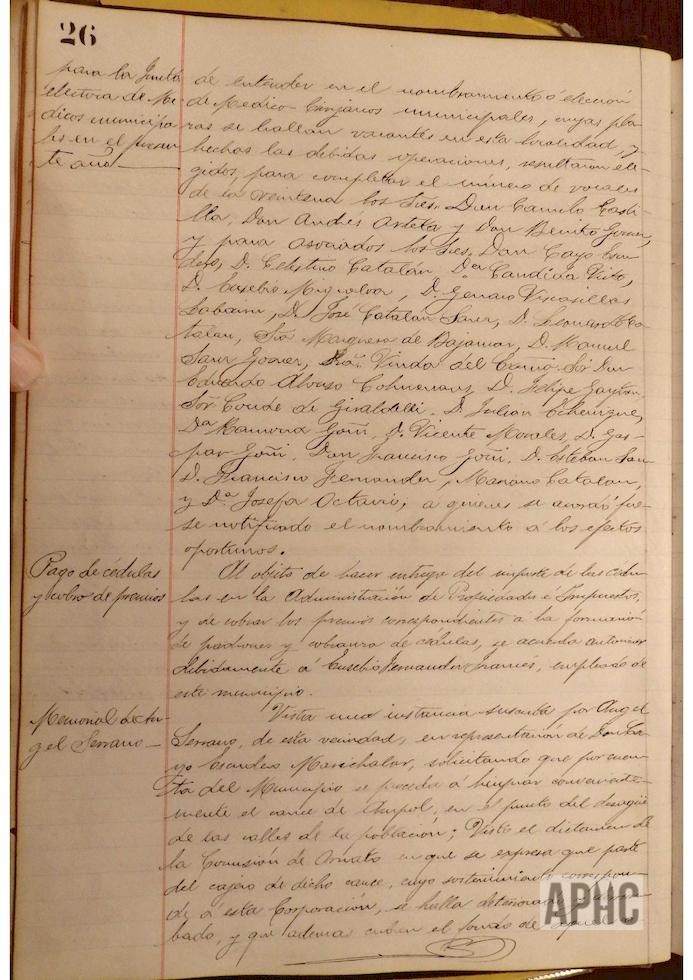 26
para la Junta
electora de Mé
dicos municipa
les en el presen
te año
de entender en el nombramiento ó elección
de Médico-Cirujanos municipales, cuyas pla
zas se hallan vacantes en esta localidad, y
hechas las debidas operaciones, resultaron ele-
gidos, para completar el número de vocales
de la veintena los Sres. Don Camilo Casti-
lla, Don Andrés Arteta y Don Benito Gomez,
y para asociados los Sres. Don Cayo Escu-
dero, D. Celestino Catalán, Dª Candida
D. Eusebio Miqueleiz, D. Genaro Viscasillas
D. José Catalan Sanz, D. Leonardo Ca-
talan, Sra. Marquesa de Bajamar, D. Manuel
Sanz Gomez, Sra. Viuda del Camio. Sor Don
Eduardo Alonso Colmenares, D. Felipe Gaytan,
Sor. Conde de Giraldelli. D. Julian Echenique,
Dª Ramona Goñi, D. Vicente Morales, D. Gas-
par Goñi, Don Francisco Goñi, D. Esteban
D. Francisco Fernandez, Mariano Catalan,
y Dª Josefa Octavio; á quienes se acordó fue-
se notificado el nombramiento á los efectos
oportunos.
Pago de cédulas
y cobro de premios
Al objeto de hacer entrega del importe de las cédu-
las en la Administración de Propiedades e Impuestos,
y de cobrar los premios correspondientes a la formación
de padrones y cobranza de cédulas, se acuerda autorizar
debidamente á Eusebio Fernandez Francés, empleado de
este municipio.
Memorial de An-
gel Serrano
Vista una instancia suscrita por Angel
Serrano, de esta vecindad, en representación de Don Ca-
yo Escudero Marichalar, solicitando que por cuen-
ta del Municipio se proceda á limpiar conveniente-
mente el cauce de en el punto del desagüe
de las calles de la población; Visto el dictamen de
la Comisión de Ornato en que se expresa que parte
del cajero de dicho cauce, cuyo sostenimiento correspon-
de á esta Corporación, se halla deteriorado
bado, y que ademas cubren el fondo de aquel
APHC